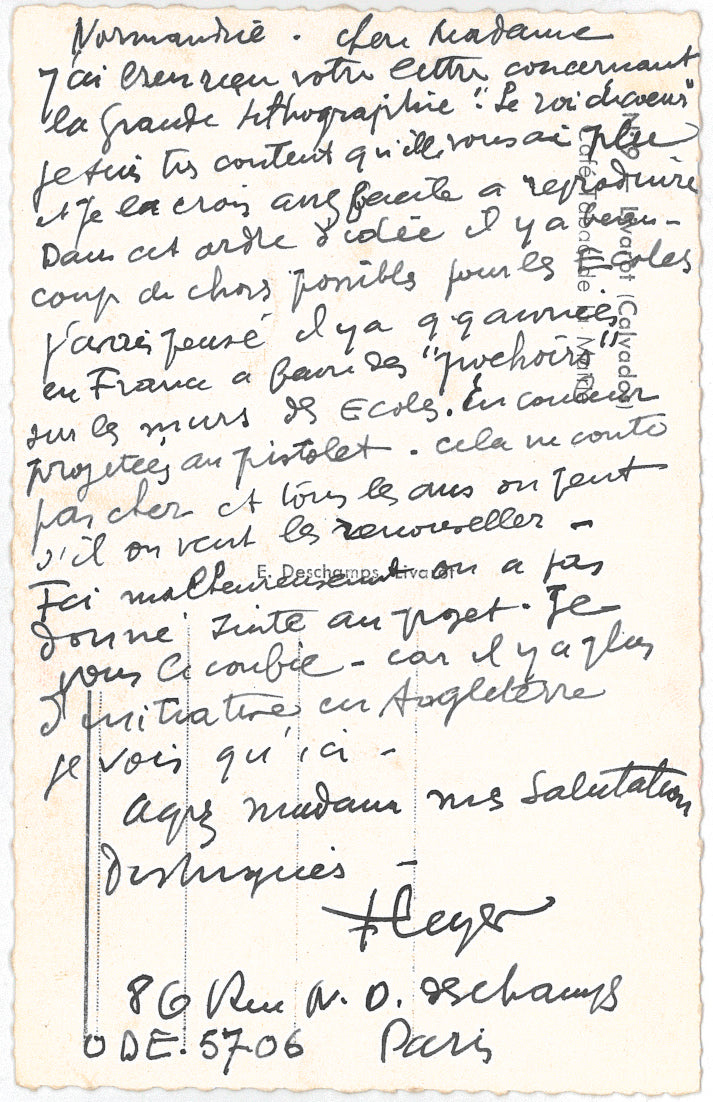 Normandie. chère Madame
J'ai bien reçu votre lettre concernant
la grande lithographie "Le roi de coeur"
je suis très content qu'elle vous ai plu
et je la crois assez facile a reproduire
Dans cet ordre d'idée il y a beau-
coup de choses possibles pour les Ecoles
j'avais pensé il y a qq années
en France a faire des "pochoirs"
sur les murs des Ecoles. En couleur
projetées au pistolet. cela ne coute
pas cher et tous les ans on peut
s'il on veut les renouveller -
Ici malheureusement on a pas
donné suite au projet. Je
vous - car il y a plus
d'initiative en Angleterre
je vois qu'ici -
Agréez madame mes Salutation
Distinguées -
F Leger
86 Rue N. D. des champs
ODE. 57-06 Paris
Livarot (Calvados)
Café Tabac de la Mairie
E. Deschamps, Livarot